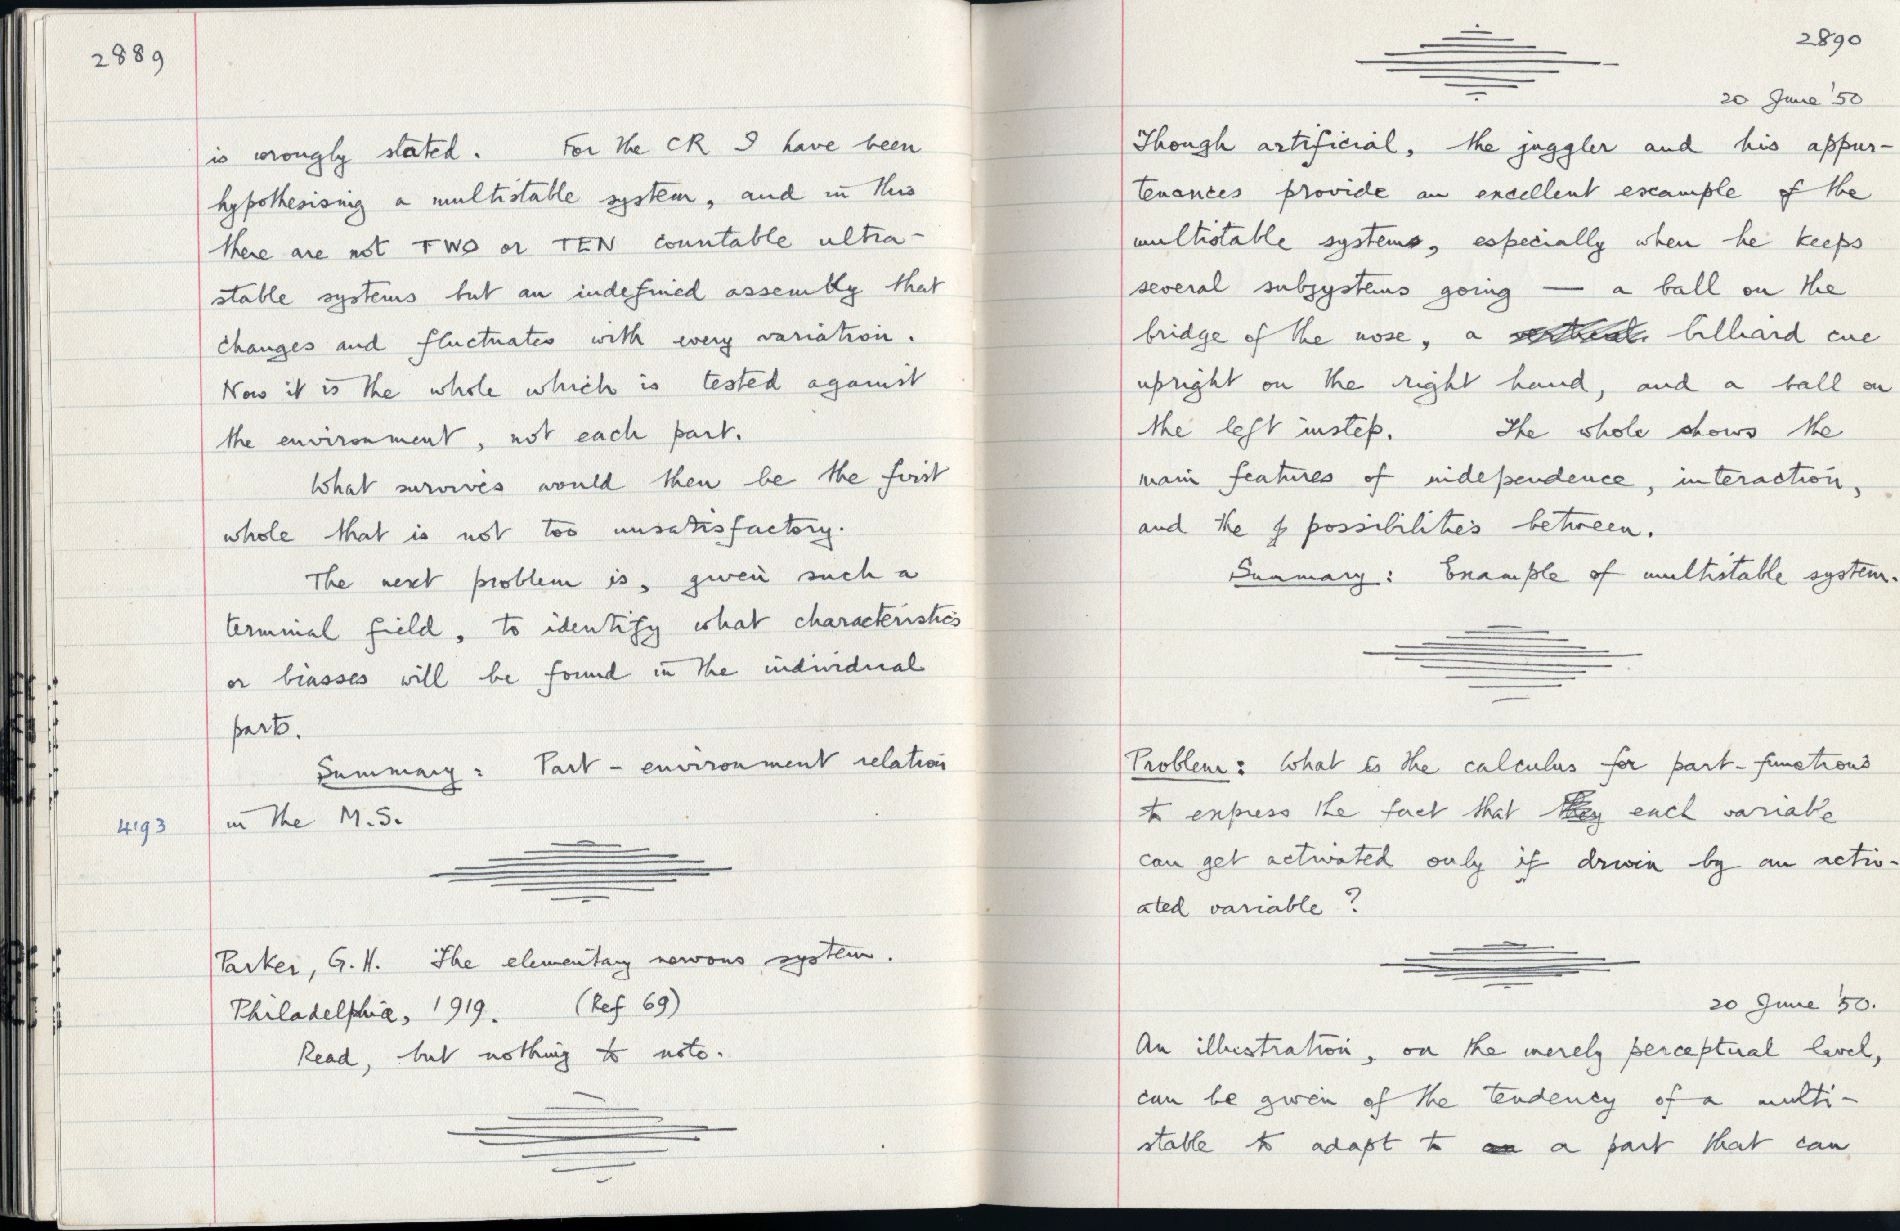 2889
is wrongly stated. For the CR I have been
hypothesising a multistable system, and in this
there are not TWO or TEN countable ultra-
stable systems but an indefined assembly that
changes and fluctuates with every variation.
Now it is the whole which is tested against
the environment, not each part.
What survives would then be the first
whole that is not too unsatisfactory.
The next problem is, given such a
terminal field, to identify what characteristics
or biasses will be found in the individual
parts.
Summary: Part-environment relation
4193 in the M.S.
Parker, G.H. The elementary nervous system.
Philadelphia, 1919. (Ref 69)
Read, but nothing to note.
2890
20 June '50
Though artificial, the juggler and his appur-
tenances provide an excellent example of the
multistable system, especially when he keeps
several subsystems going — a ball on the
bridge of the nose, a vertical billiard cue
upright on the right hand, and a ball on
the left instep. The whole shows the
main features of independence, interaction,
and the p possibilities between.
Summary: Example of multistable system.
Problem: What is the calculus for part-functions
to express the fact that they each variable
can get activated only if driven by an activ-
ated variable?
20 June '50.
An illustration, on the merely perceptual level,
can be given of the tendency of a multi-
stable to adapt to an a part that can